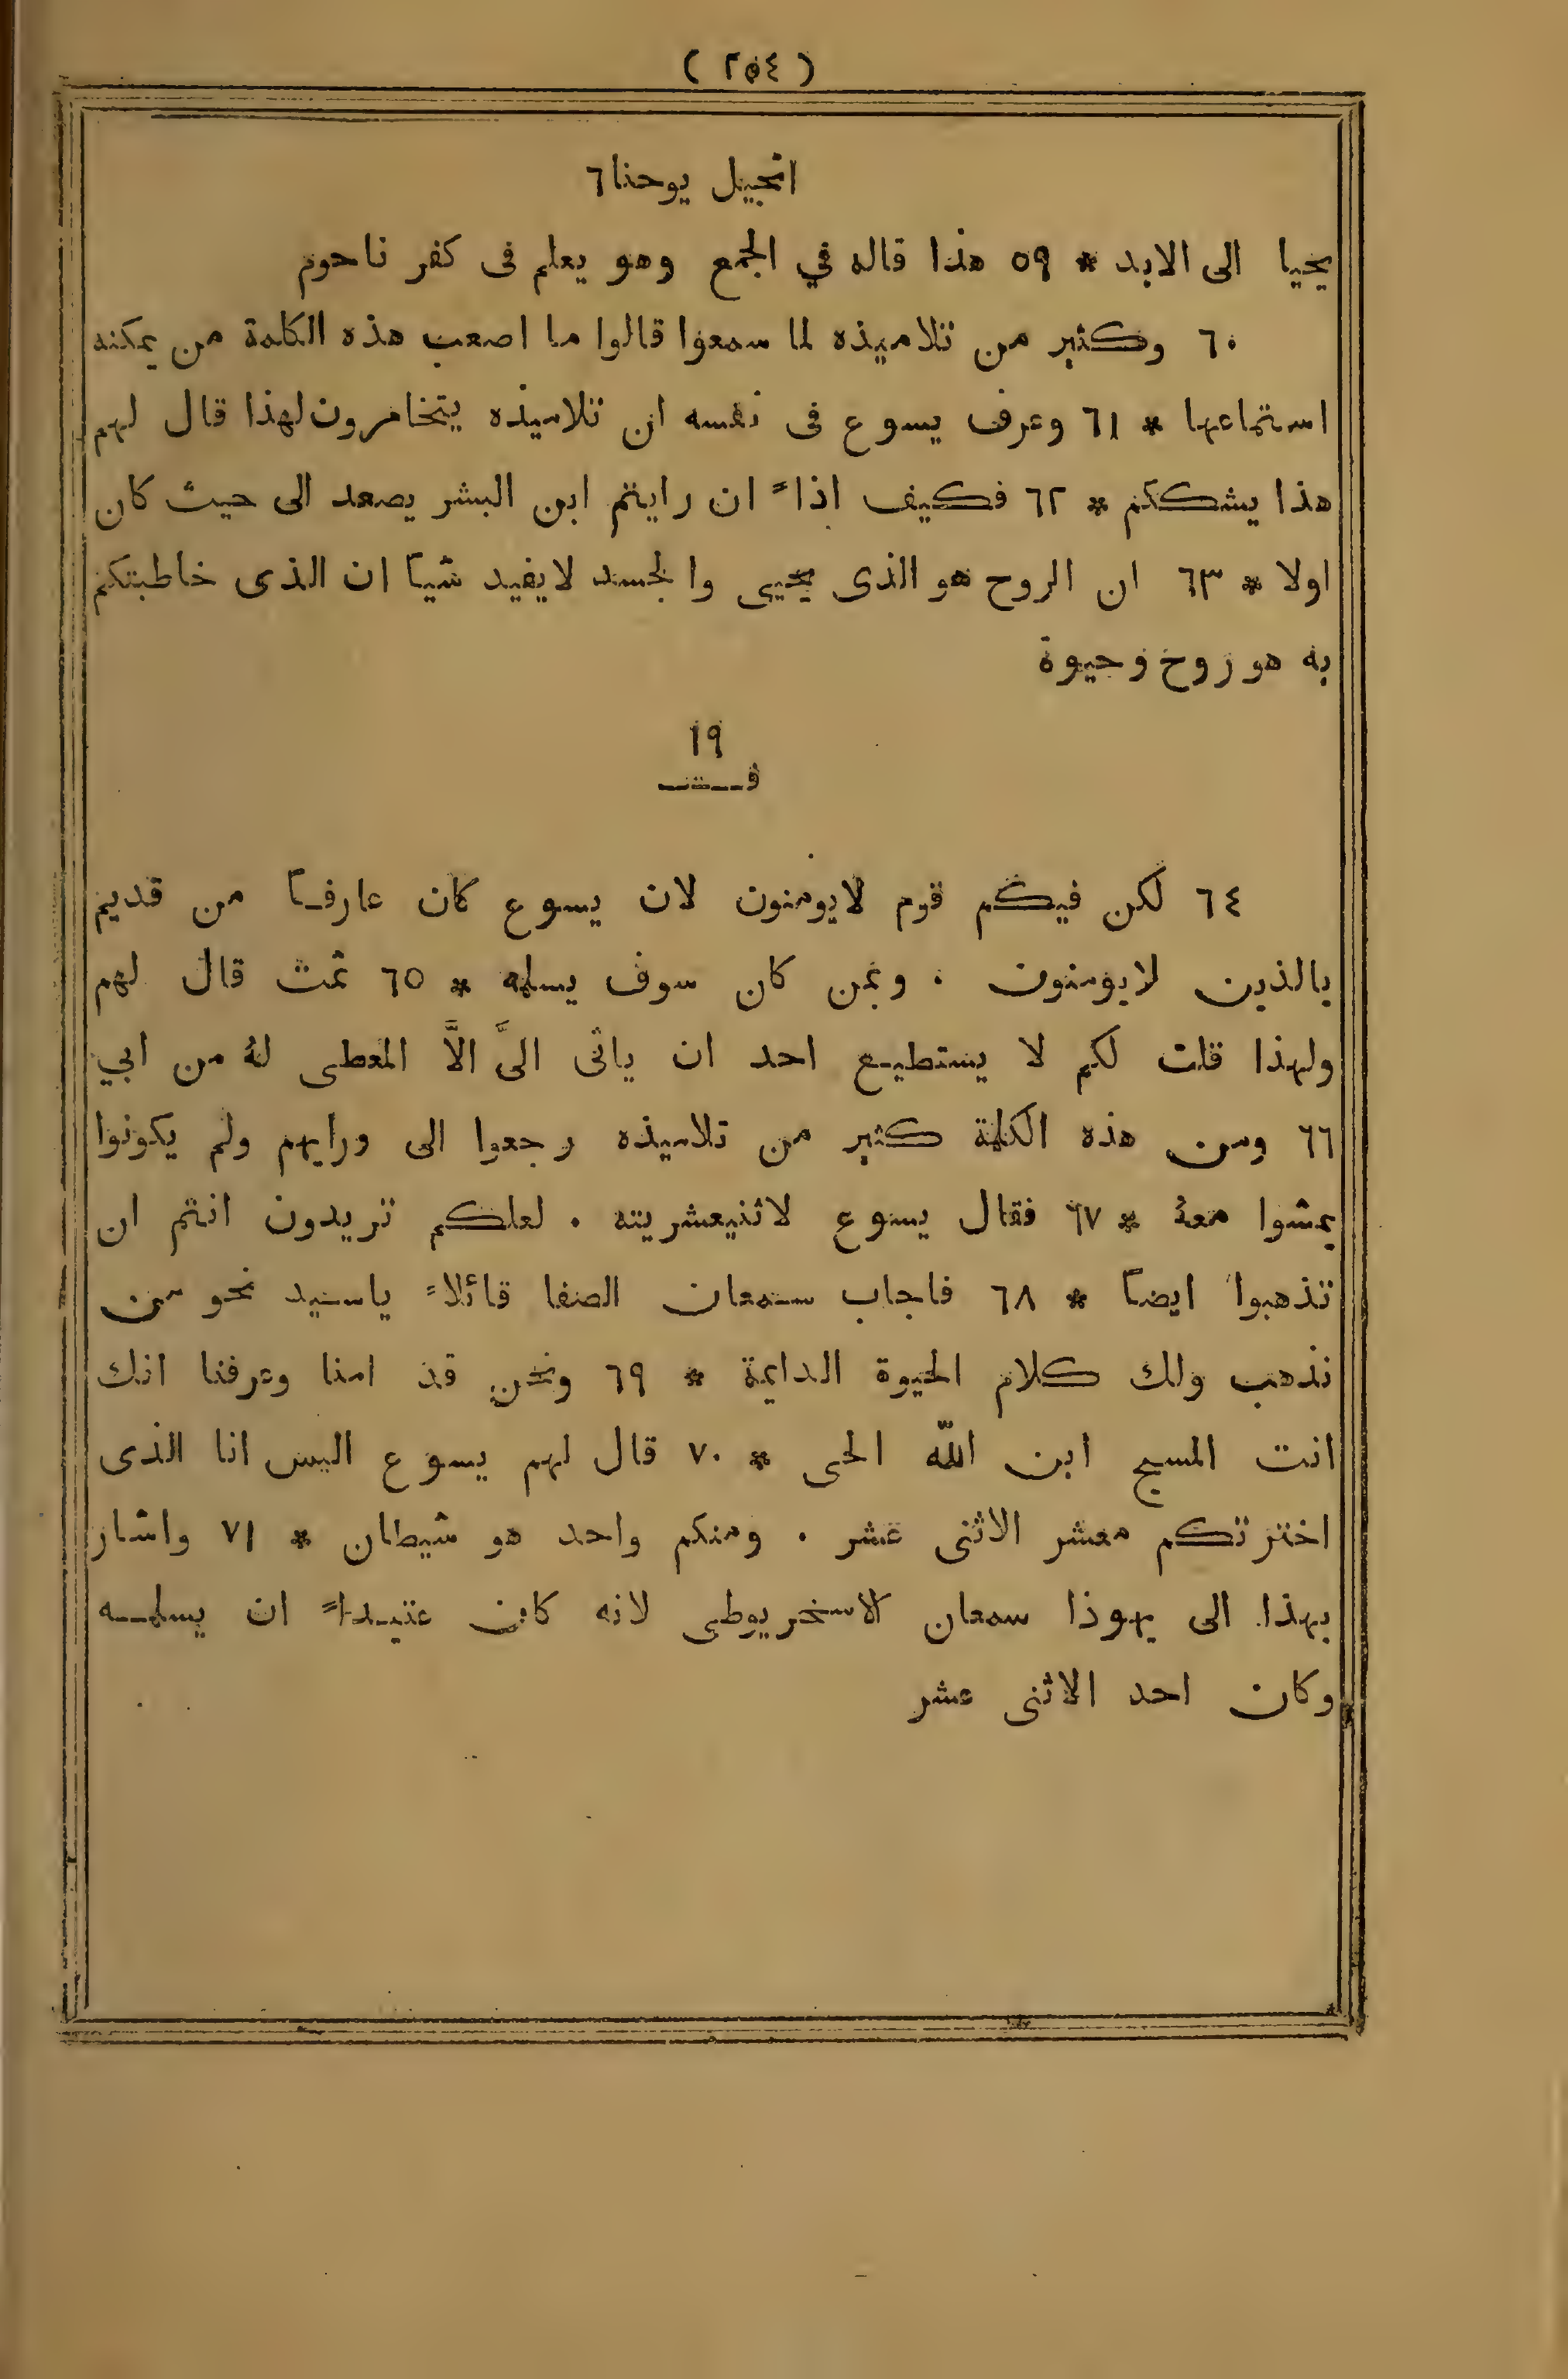 ( ٢٥٤ )
انجيل يوحنا ٦
يحيا الى الابد * ٥٩ هذا قاله في المجمع وهو يعلم فى كفر ناحوم
٦٠ وكثير من تلاميذه لما سمعوا قالوا ما اصعب هذه الكلمة من يمكنه
استماعها * ٦١ وعرف يسوع فى نفسه ان تلاميذه يتخامرون لهذا قال لهم
هذا يشككم * ٦٢ فكيف اذاً ان رايتم ابن البشر يصعد الى حيث كان
اولا * ٦٣ ان الروح هو الذى يحيى والجسد لايفيد شياً ان الذى خاطبتكم
به هو روح وحيوة
١٩
ڡـتـ
٦٤ لكن فيكم قوم لايومنون لان يسوع كان عارفـاً من قديم
بالذين لايومنون . وبمن كان سوف يسلمه * ٦٥ ثمت قال لهم
ولهذا قلت لكم لا يستطيع احد ان ياتى الىَّ الاَّ المعطى لهُ من ابي
٦٦ ومن هذه الكلمة كثير من تلاميذه رجعوا الى ورايهم ولم يكونوا
يمشوا معهُ * ٦٧ فقال يسوع لاثنيعشريته . لعلكم تريدون انتم ان
تذهبوا ايضاً * ٦٨ فاجاب سمعان الصفا قائلاً ياسيد نحو من
نذهب ولك كلام الحيوة الدايمة * ٦٩ ونحن قد امنا وعرفنا انك
انت المسيح ابن اللّه الحى * ٧٠ قال لهم يسوع اليس انا الذى
اخترتكم معشر الاثنى عشر . ومنكم واحد هو شيطان * ٧١ واشار
بهذا الى يهوذا سمعان الاسخريوطى لانه كان عتيـداً ان يسلمـه
وكان احد الاثنى عشر